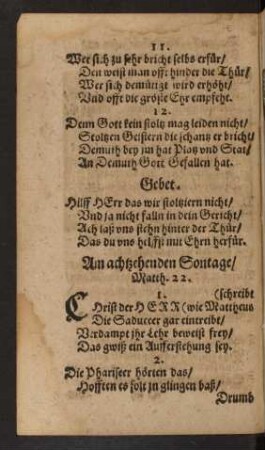 11.
Wer sich zu sehr bricht selbs erfür/
Den weist man offt hinder die Thür/
Wer sich demütigt wird erhöht/
Vnd offt die gröste Ehr empfeht.
12.
Denn Gott kein stoltz mag leiden nicht/
Stoltzen Geistern die schantz er bricht/
Demuth bey jm hat Platz vnd Stat/
An Demuth Gott Gefallen hat.
Gebet.
Hilff HErr das wir stoltziern nicht/
Vnd ja nicht falln in dein Gericht/
Ach laß vns stehn hinter der Thür/
Das du vns helffst mit Ehrn herfür.
Am achtzehenden Sontage/
Matth. 22.
1.
(schreibt
CHrist der HERR (wie Mattheus
Die Saduceer gar eintreibt/
Verdampt jhr Lehr beweist frey/
Das gwiß ein Aufferstehung sey.
2.
Die Phariseer hörten das/
Hofften es solt jn glingen baß/
Drumb